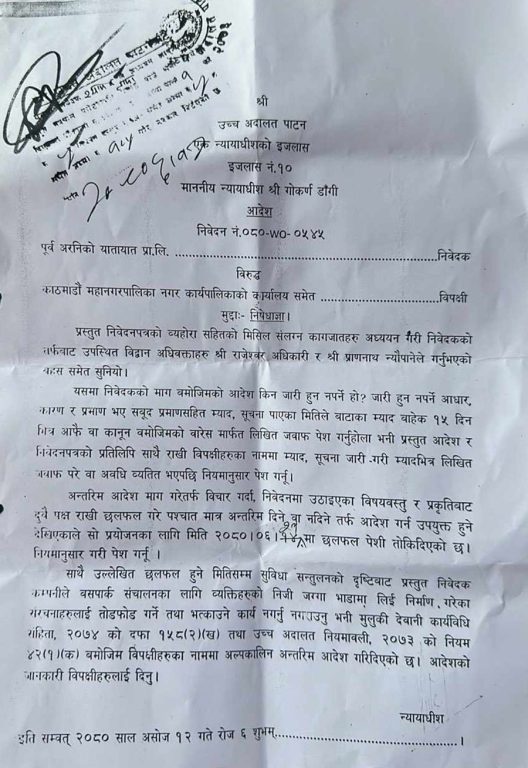 श्री
उच्च अदालत पाटन
एक न्यायाधीशको इजलास
इजलास नं.१०
माननीय न्यायाधीश श्री गोकर्ण डाँगी
आदेश
निवेदन नं.०८०-WO-०५४५
पूर्व अरनिको यातायात प्रा.लि. ..................................................निवेदक
विरुद्ध
काठमाडौं महानगरपालिका नगर कार्यपालिकाको कार्यालय समेत ........................विपक्षी
मुद्दाः- निषेधाज्ञा।
प्रस्तुत निवेदनपत्रको व्यहोरा सहितको मिसिल संलग्न कागजातहरु अध्ययन गरी निवेदकको
तर्फबाट उपस्थित विद्वान अधिवक्ताहरु श्री राजेश्वर अधिकारी र श्री प्राणनाथ न्यौपानेले गर्नुभएको
बहस समेत सुनियो।
यसमा निवेदकको माग बमोजिमको आदेश किन जारी हुन नपर्ने हो? जारी हुन नपर्ने आधार,
कारण र प्रमाण भए सबूद प्रमाणसहित म्याद, सूचना पाएका मितिले बाटाका म्याद बाहेक १५ दिन
भित्र आफै वा कानून बमोजिमको वारेस मार्फत लिखित जवाफ पेश गर्नुहोला भनी प्रस्तुत आदेश र
निवेदनपत्रको प्रतिलिपि साथै राखी विपक्षीहरुका नाममा म्याद, सूचना जारी गरी म्यादभित्र लिखित
जवाफ परे वा अवधि व्यतित भएपछि नियमानुसार पेश गर्नू।
अन्तरिम आदेश माग गरेतर्फ विचार गर्दा, निवेदनमा उठाइएका विषयवस्तु र प्रकृतिबाट
दुवै पक्ष राखी छलफल गरे पश्चात मात्र अन्तरिम दिने वा नदिने तर्फ आदेश गर्न उपयुक्त हुने
देखिएकाले सो प्रयोजनका लागि मिति २०८०।०६। मा छलफल पेशी तोकिदिएको छ।
नियमानुसार गरी पेश गर्नू ।
साथै उल्लेखित छलफल हुने मितिसम्म सुविधा सन्तुलनको दृष्टिबाट प्रस्तुत निवेदक
कम्पनीले बसपार्क संचालनका लागि व्यक्तिहरुको निजी जग्गा भाडामा लिई निर्माण गरेका
संरचनाहरुलाई तोडफोड गर्ने तथा भत्काउने कार्य नगर्नु नगराउनु भनी मुलुकी देवानी कार्यविधि
संहिता, २०७४ को दफा १५८(२)(ख) तथा उच्च अदालत नियमावली, २०७३ को नियम
४२(१)(क) बमोजिम विपक्षीहरुका नाममा अल्पकालिन अन्तरिम आदेश गरिदिएको छ। आदेशको
जानकारी विपक्षीहरुलाई दिनु।
न्यायाधीश
इति सम्वत् २०८० साल असोज १२ गते रोज ६ शुभम्.......................................।